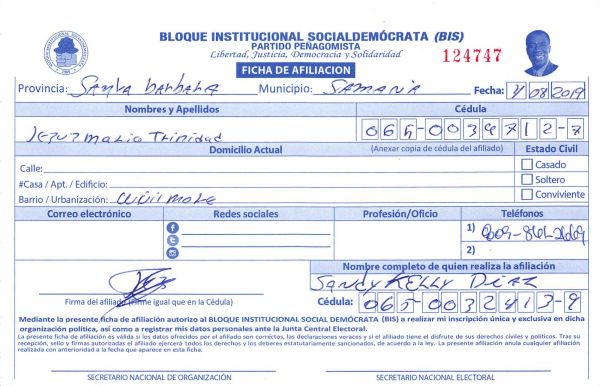 BLOQUE INSTITUCIONAL SOCIALDEMÓCRATA (BIS)
PARTIDO PEÑAGOMISTA
Libertad, Justicia, Democracia y Solidaridad
124747
FICHA DE AFILIACION
Provincia: Santa barbara Municipio: SAMANA Fecha: 08/2019
Nombres y Apellidos Cédula
Trinidad 065-0039712-7
Domicilio Actual (Anexar copia de cédula del afiliado) Estado Civil
Calle: Casado
#Casa / Apt. / Edificio: Soltero
Barrio / Urbanización: Conviviente
Correo electrónico Redes sociales Profesión/Oficio Teléfonos
1) 809-861-
2)
Nombre completo de quien realiza la afiliación
Sandy KELLY DIAZ
Firma del afiliado (Firme igual que en la Cédula) Cédula: 065-0032413-9
Mediante la presente ficha de afiliación autorizo al BLOQUE INSTITUCIONAL SOCIAL DEMÓCRATA (BIS) a realizar mi inscripción única y exclusiva en dicha
organización política, así como a registrar mis datos personales ante la Junta Central Electoral.
La presente ficha de afiliación es válida si los datos ofrecidos por el afiliado son corréctos, las declaraciones voraces y si el afiliado tiene el disfrute de sus derechos civiles y politicos. Tras su
recepción, sello y firmas autorizadas el afiliado ejercerá todos los derechos y los deberes estatutariamente sancionados, de acuerdo a la ley. La presente afiliación anula cualquier afiliación
realizada con anterioridad a la fecha que aparece en esta ficha.
SECRETARIO NACIONAL DE ORGANIZACIÓN SECRETARIO NACIONAL ELECTORAL